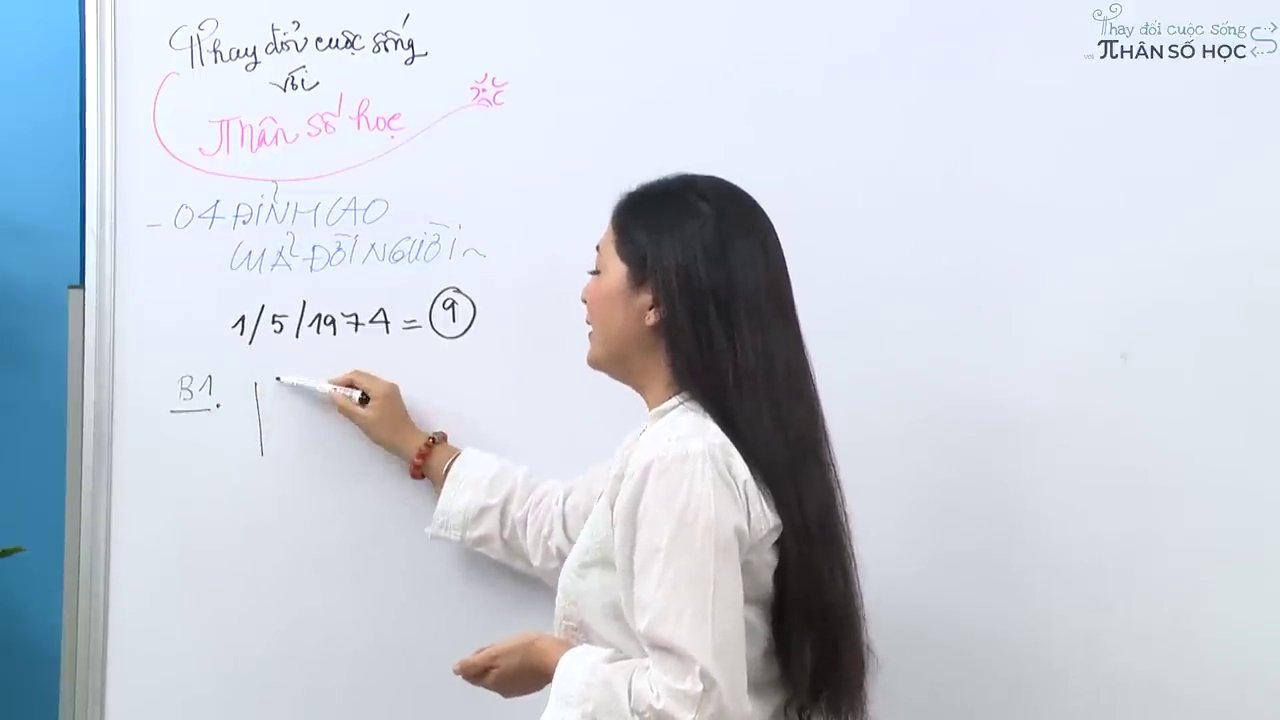 Thay đổi cuộc sống
với
Thân số học
- 04 ĐỈNH CAO
CỦA ĐỜI NGƯỜI ~
1/5/1974 = 9
B1.
Thay đổi cuộc sống
với THÂN SỐ HỌC